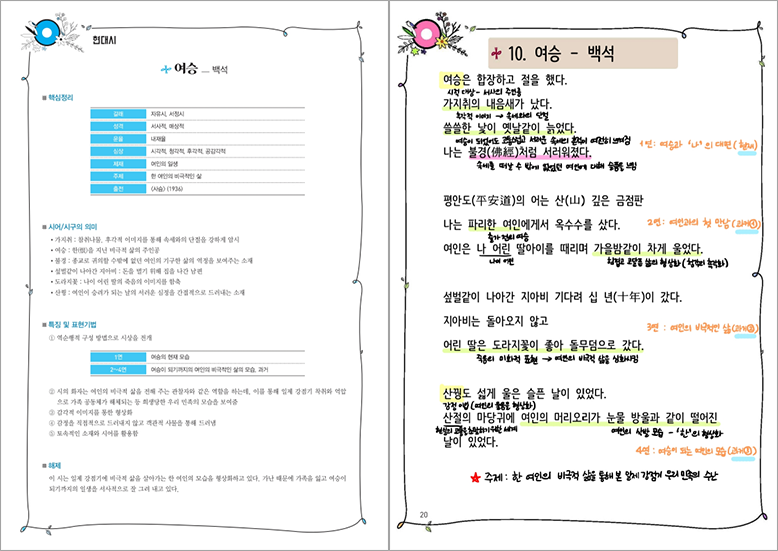 현대시
여승 — 백석
핵심정리
갈래 자유시, 서정시
성격 서사적, 애상적
운율 내재율
심상 시각적, 청각적, 후각적, 공감각적
제재 여인의 일생
주제 한 여인의 비극적인 삶
출전 <사슴> (1936)
시어/시구의 의미
• 가지취 : 참취나물, 후각적 이미지를 통해 속세와의 단절을 강하게 암시
• 여승 : 한(恨)을 지닌 비극적 삶의 주인공
• 불경 : 종교로 귀의할 수밖에 없던 여인의 기구한 삶의 역정을 보여주는 소재
• 섶벌같이 나아간 지아비 : 돈을 벌기 위해 집을 나간 남편
• 도라지꽃 : 나이 어린 딸의 죽음의 이미지를 함축
• 산꿩 : 여인이 승려가 되는 날의 서러운 심정을 간접적으로 드러내는 소재
특징 및 표현기법
① 역순행적 구성 방법으로 시상을 전개
1연 여승의 현재 모습
2~4연 여승이 되기까지의 여인의 비극적 삶의 모습, 과거
② 시의 화자는 여인의 비극적 삶을 전해 주는 관찰자와 같은 역할을 하는데, 이를 통해 일제 강점기 착취와 억압
으로 가족 공동체가 해체되는 등 희생당한 우리 민족의 모습을 보여줌
③ 감각적 이미지를 통한 형상화
④ 감정을 직접적으로 드러내지 않고 객관적 사물을 통해 드러냄
⑤ 토속적인 소재와 시어를 활용함
해제
이 시는 일제 강점기에 비극적 삶을 살아가는 한 여인의 모습을 형상화하고 있다. 가난 때문에 가족을 잃고 여승이
되기까지의 일생을 서사적으로 잘 그려 내고 있다.
10. 여승 - 백석
여승은 합장하고 절을 했다.
시적 대상 - 서사의 주인공
가지취의 내음새가 났다.
후각적 이미지 → 속세와의 단절
쓸쓸한 낯이 옛날같이 늙었다.
1연: 여승과 '나'의 대면 (현재)
나는 불경(佛經)처럼 서러워졌다.
평안도(平安道)의 어는 산(山) 깊은 금점판
나는 파리한 여인에게서 옥수수를 샀다.
2연: 여인과의 첫 만남 (과거①)
출가 전의 여승
여인은 나 어린 딸아이를 때리며 가을밤같이 차게 울었다.
나이 어린
섶벌같이 나아간 지아비 기다려 십 년(十年)이 갔다.
지아비는 돌아오지 않고
3연: 여인의 비극적인 삶 (과거②)
어린 딸은 도라지꽃이 좋아 돌무덤으로 갔다.
죽음의 미화적 표현 → 여인의 비극적 삶을 심화시킴
산꿩도 섧게 울은 슬픈 날이 있었다.
감정 이입 (여인의 슬픔을 형상화)
산절의 마당귀에 여인의 머리오리가 눈물 방울과 같이 떨어진
여인의 삭발 모습 - '한'의 형상화
날이 있었다.
4연: 여승이 되는 여인의 모습 (과거③)
★ 주제: 한 여인의 비극적 삶을 통해 본 일제 강점기 우리 민족의 수난
20